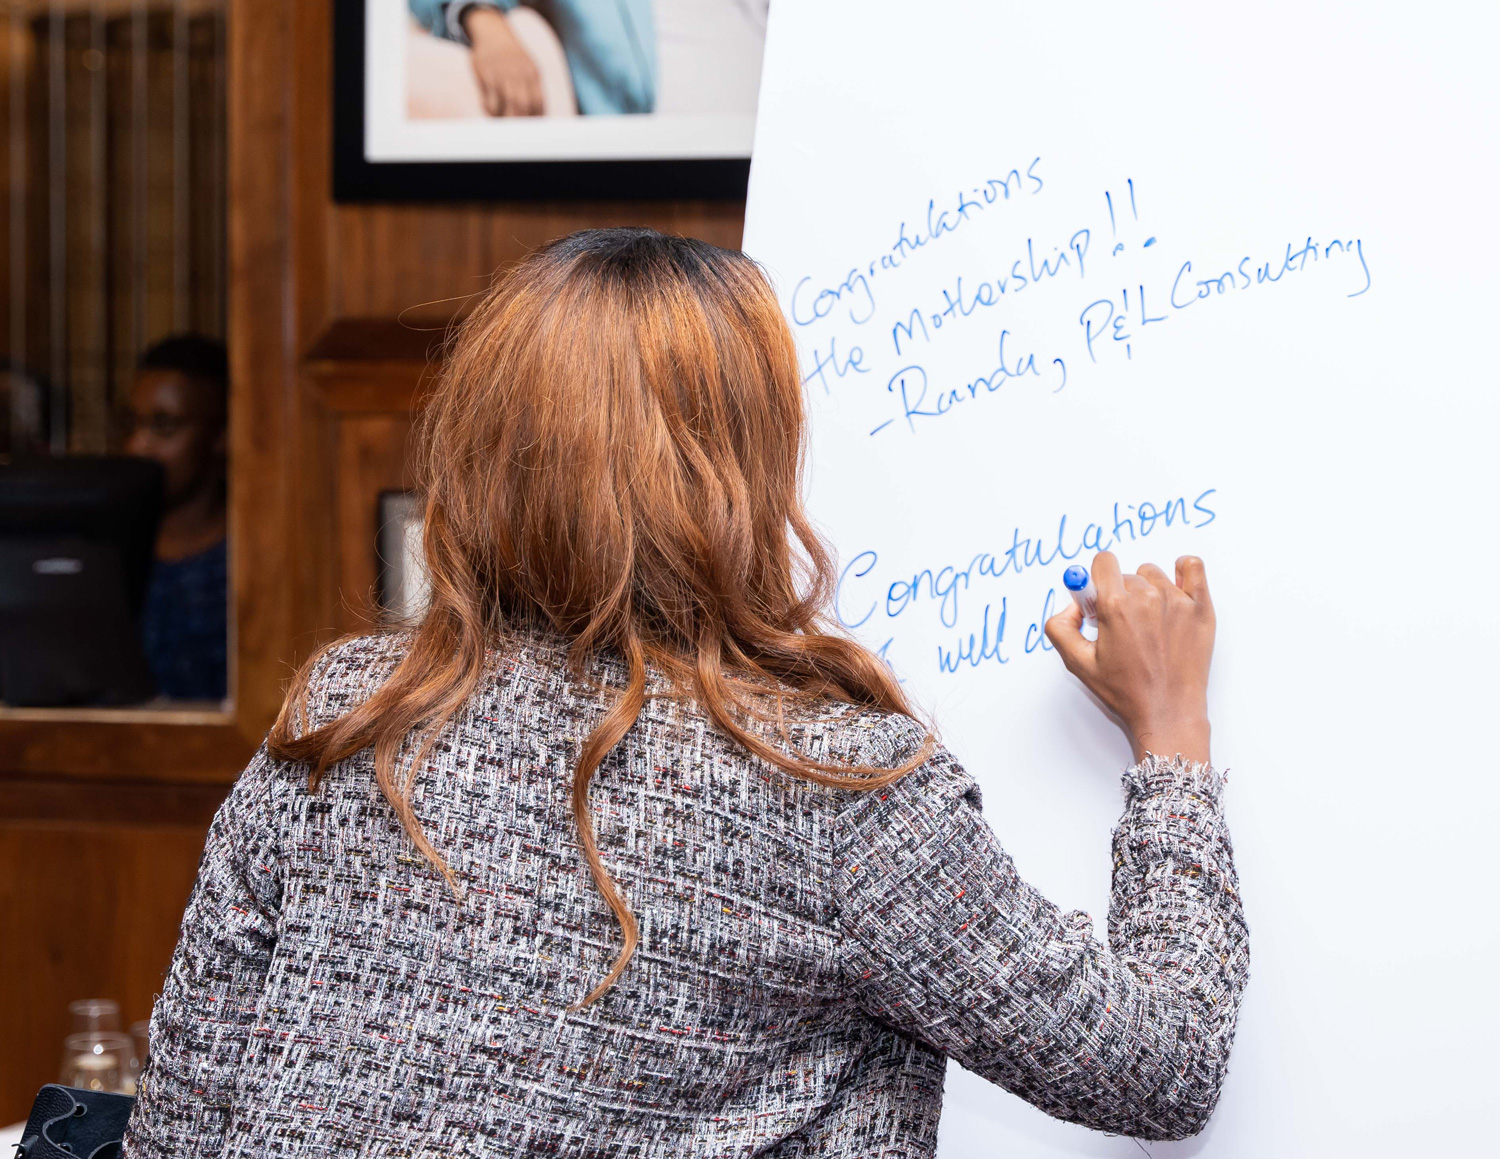 Congratulations
the Mothership!!
-Randa, P&L Consulting
Congratulations
& well d